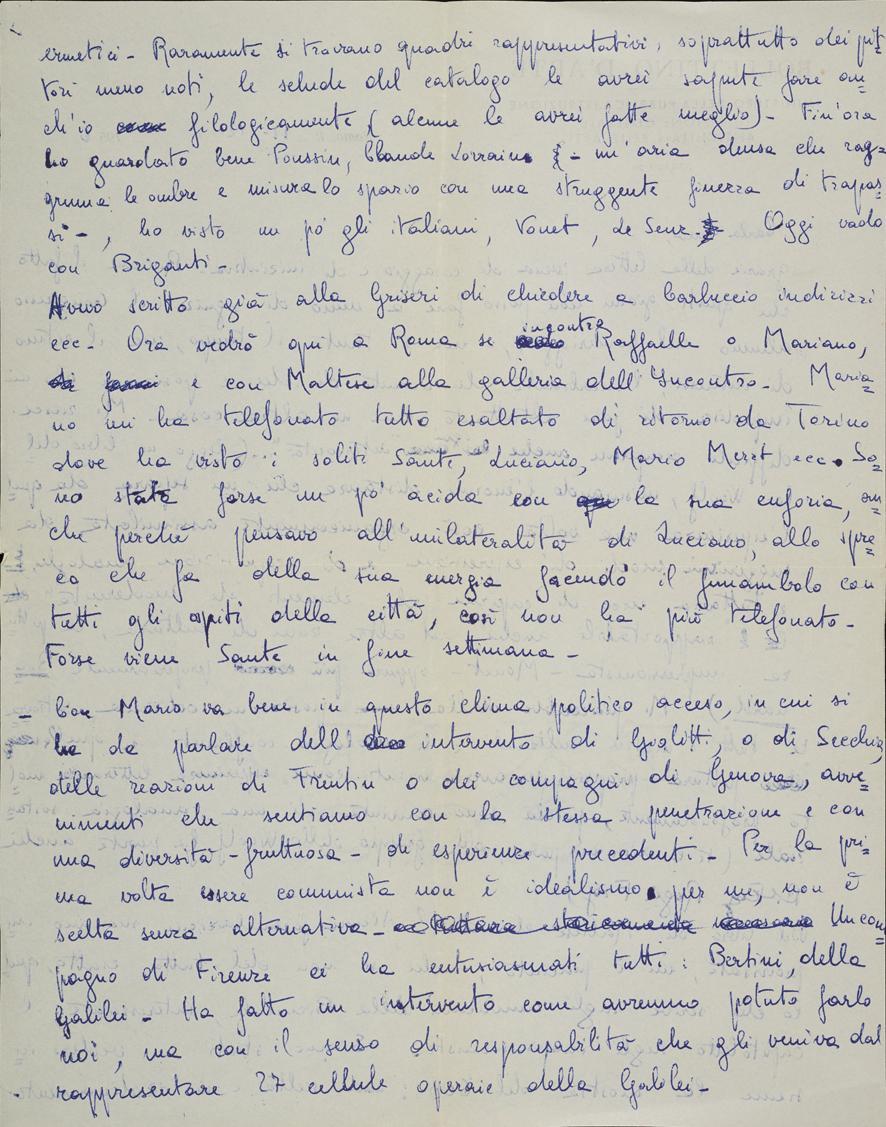 ermetici - Raramente si trovano quadri rappresentativi, soprattutto dei pit=
tori meno noti, le schede del catalogo le avrei sapute fare an=
ch'io filologicamente (alcune le avrei fatte meglio) - Fin'ora
ho guardato bene Poussin, Claude Lorrain - un'aria densa che rag=
gruma le ombre e misura lo spazio con una struggente finezza di trapas=
si -, ho visto un po' gli italiani, Vouet, Le Seur. Oggi vado
con Briganti -
Avevo scritto già alla Griseri di chiedere a Carluccio indirizzi
ecc - Ora vedrò qui a Roma se incontro Raffaelle o Mariano,
e con Maltese alla galleria dell'Incontro - Maria=
no mi ha telefonato tutto esaltato di ritorno da Torino
dove ha visto i soliti Sante, Luciano, Mario Merz ecc. So=
no stata forse un po' acida con la sua euforia, an=
che perché pensavo all'unilateralità di Luciano, allo spre=
co che fa della sua energia facendo il funambolo con
tutti gli ospiti della città, così non ha più telefonato -
Forse viene Sante in fine settimana -
- Con Mario va bene in questo clima politico acceso, in cui si
ha da parlare dell intervento di Giolitti, o di Secchia,
delle reazioni di Trentin o dei compagni di Genova, avve=
nimenti che sentiamo con la stessa penetrazione e con
una diversità - fruttuosa - di esperienze precedenti - Per la pri=
ma volta essere comunista non è idealismo per me, non è
scelta senza alternativa - Un com=
pagno di Firenze ci ha entusiasmati tutti: Bertini, della
Galilei - Ha fatto un intervento come avremmo potuto farlo
noi, ma con il senso di responsabilità che gli veniva dal
rappresentare 27 cellule operaie della Galilei -